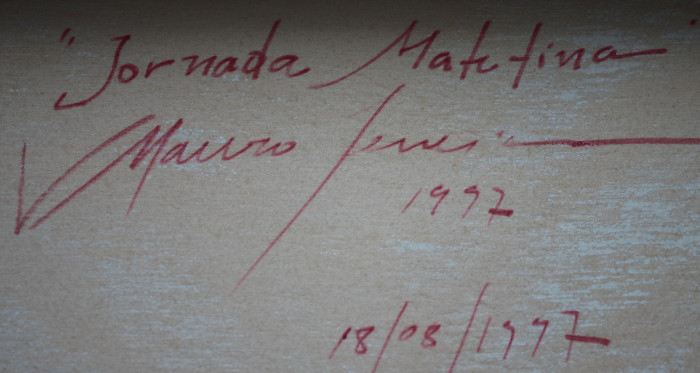 "Jornada Matutina"
Mauro
1997
18/08/1997